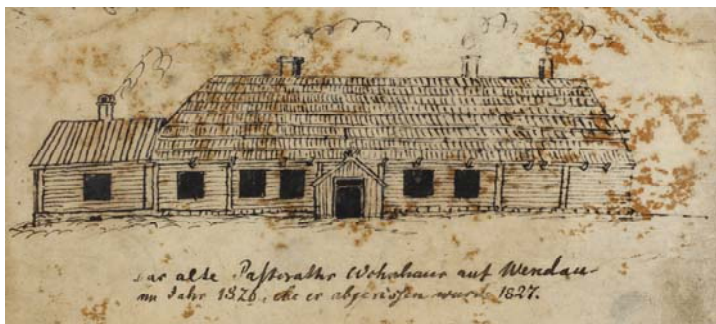 Das alte Pastoraths Wohnhaus auf Wendau
im Jahr 1826, ehe es abgerissen wurde 1827.